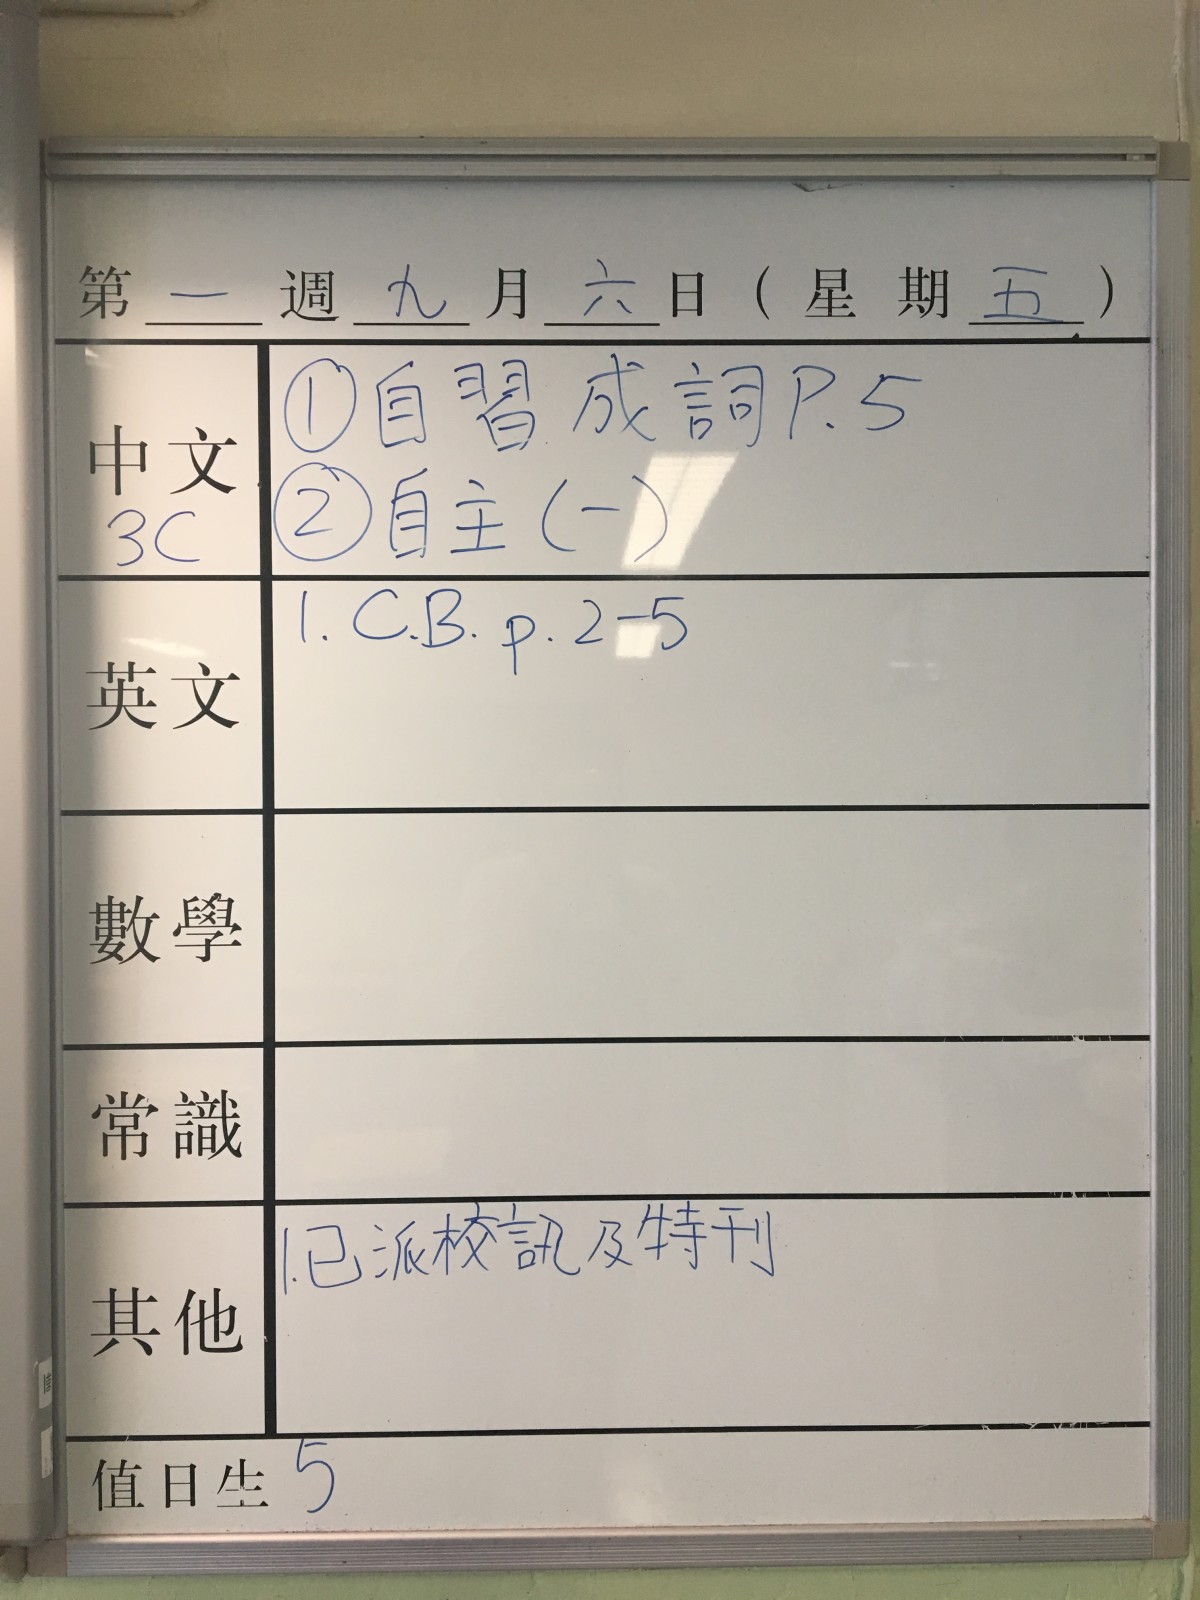 第一週九月六日(星期五)
中文
3C
①自習成詞P.5
②自主(一)
英文
1. C.B. p. 2-5
數學
常識
其他
1.已派校訊及特刊
值日生 5